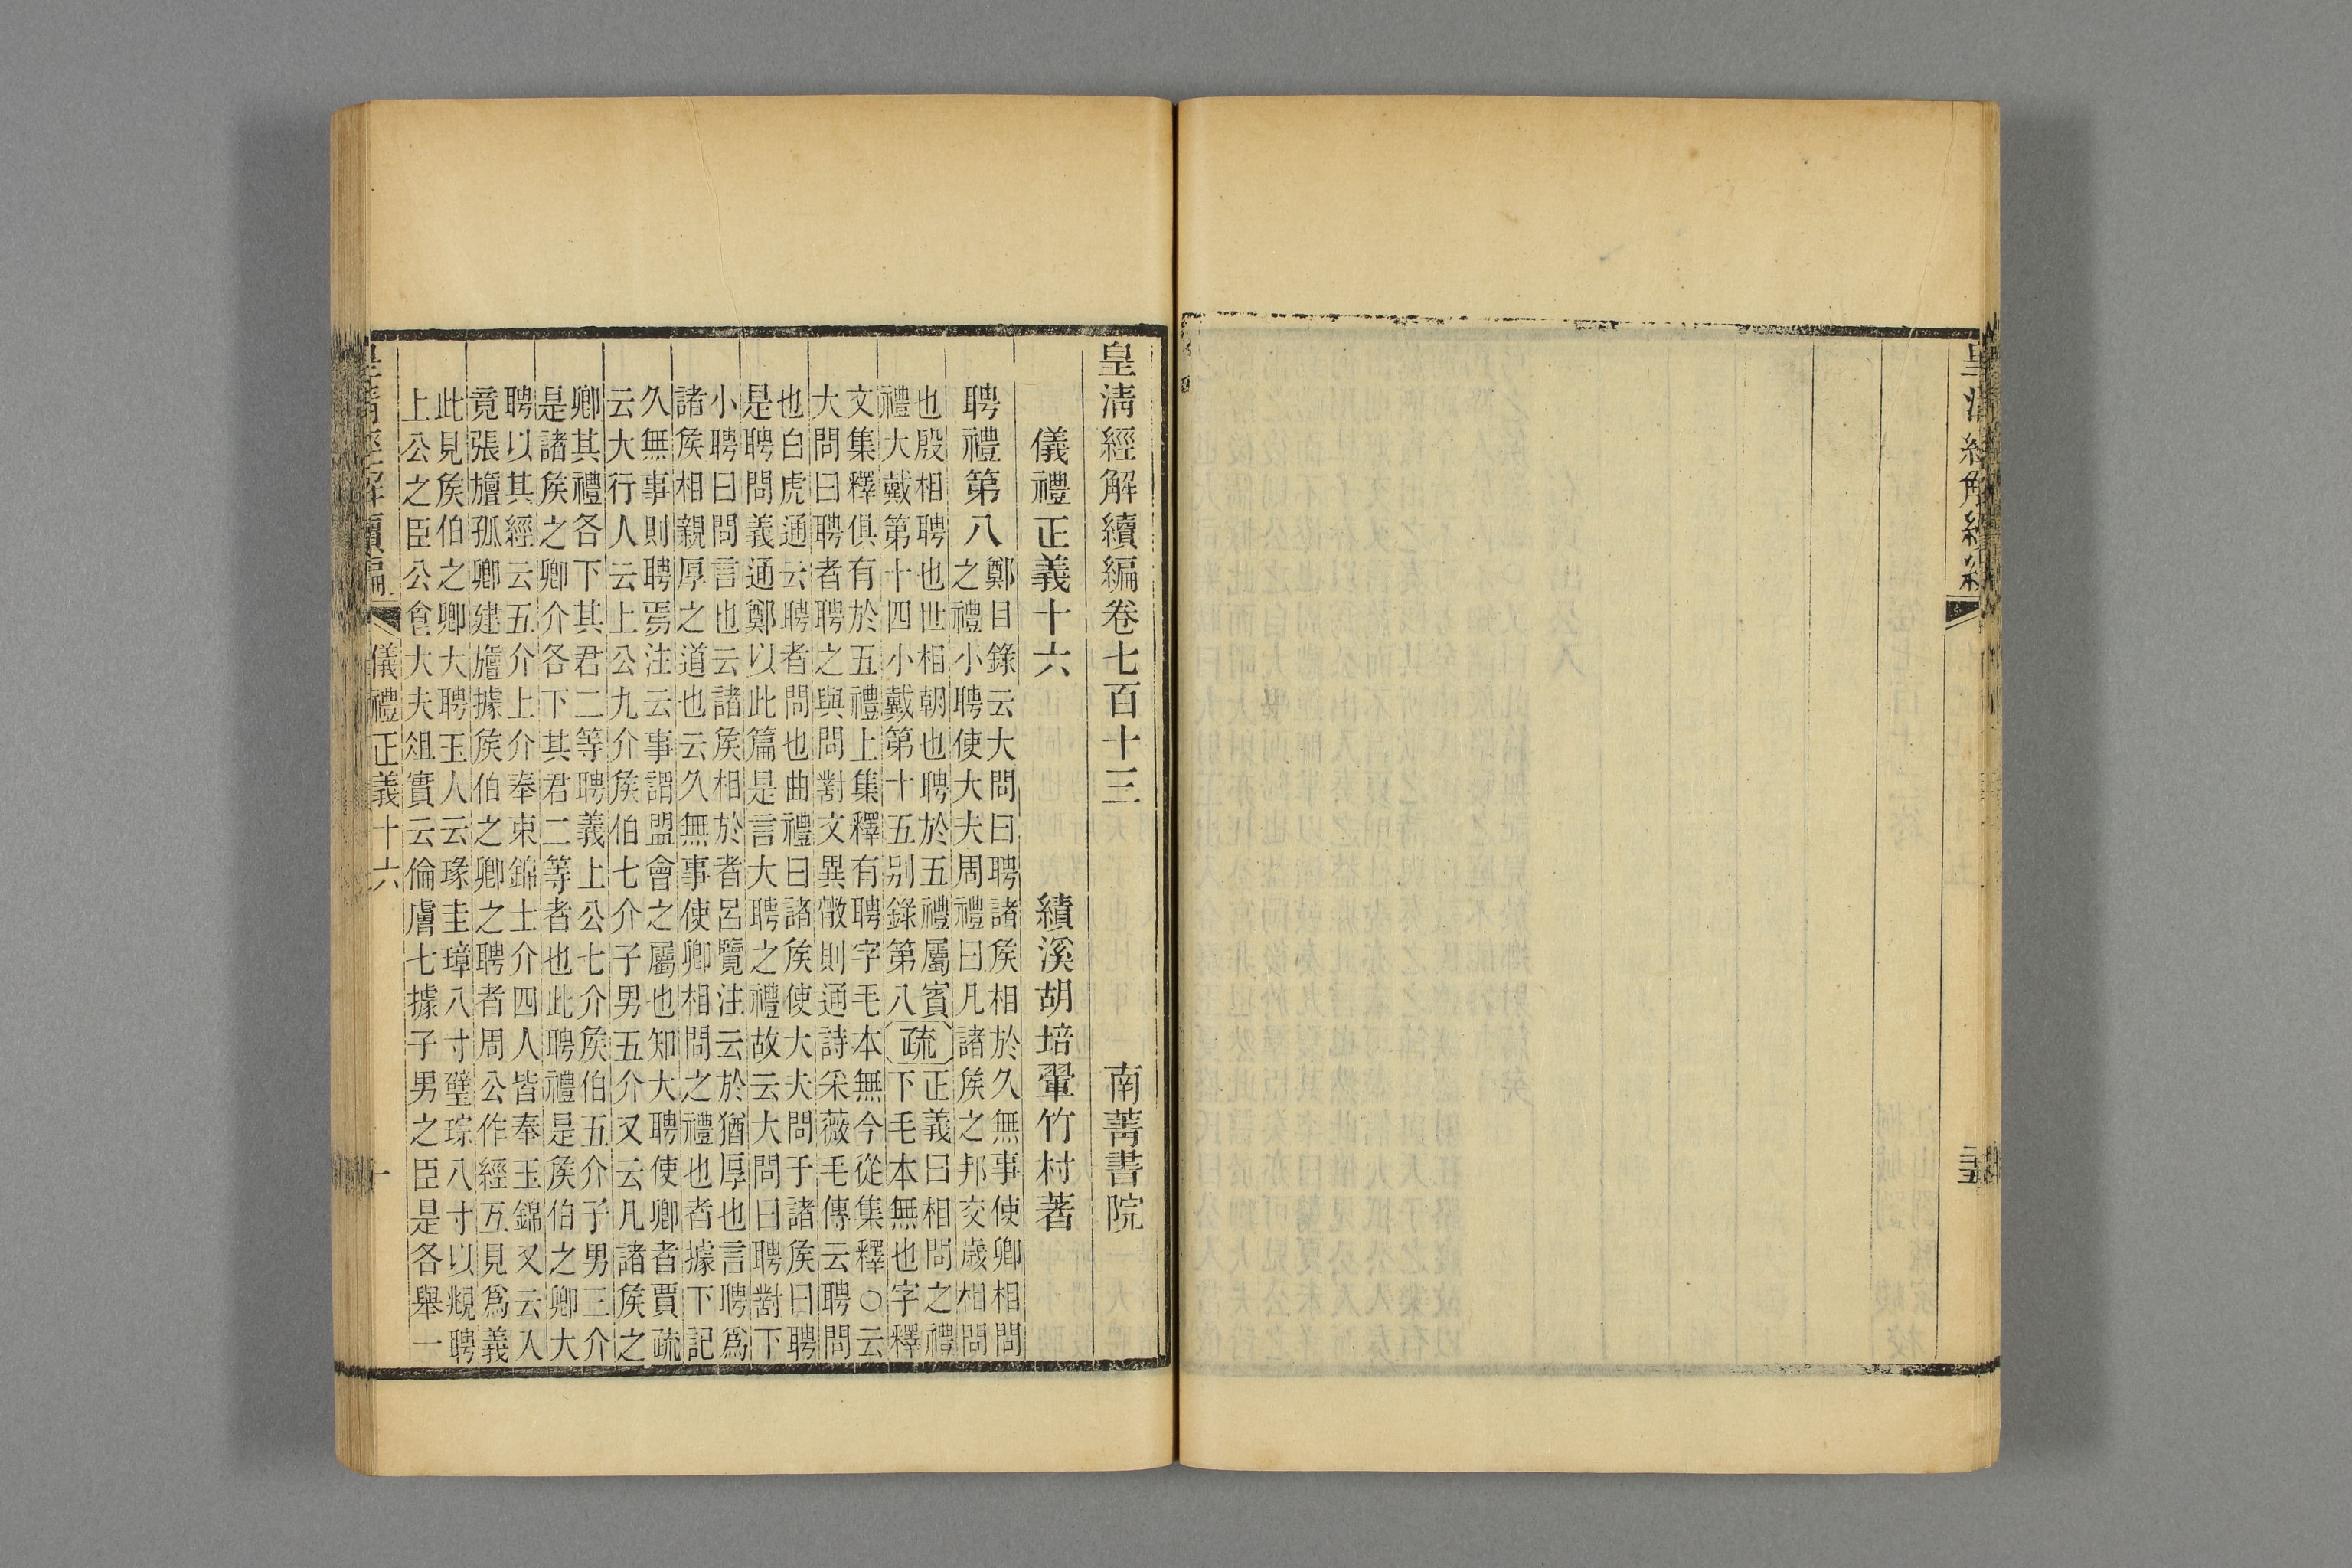 皇淸經解續編
三五
皇淸經解續編卷七百十三　南菁書院
儀禮正義十六　績溪胡培翬竹村著
聘禮第八
鄭目錄云大問曰聘諸矦相於久無事使卿相問
之禮小聘使大夫周禮曰凡諸矦之邦交歲相問
也殷相聘也世相朝也聘於五禮屬賓
禮大戴第十四小戴第十五别錄第八
疏
正義曰相問之禮
下毛本無也字釋
文集釋俱有於五禮上集釋有聘字毛本無今從集釋○云
大問曰聘者聘之與問對文異散則通詩采薇毛傳云聘問
也白虎通云聘者問也曲禮曰諸矦使大夫問于諸矦曰聘
是聘問義通鄭以此篇是言大聘之禮故云大問曰聘對下
小聘曰問言也云諸矦相於者呂覽注云於猶厚也言聘爲
諸矦相親厚之道也云久無事使卿相問之禮也者據下記
久無事則聘焉注云事謂盟會之屬也知大聘使卿者賈疏
云大行人云上公九介矦伯七介子男五介又云凡諸矦之
卿其禮各下其君二等聘義上公七介矦伯五介子男三介
是諸矦之卿介各下其君二等者也此聘禮是矦伯之卿大
聘以其經云五介上介奉束錦士介四人皆奉玉錦又云入
竟張旜孤卿建旜據矦伯之卿之聘者周公作經互見爲義
此見矦伯之卿大聘玉人云瑑圭璋八寸璧琮八寸以覜聘
上公之臣公食大夫俎實云倫膚七據子男之臣是各舉一
皇淸經解續編
儀禮正義十六
一